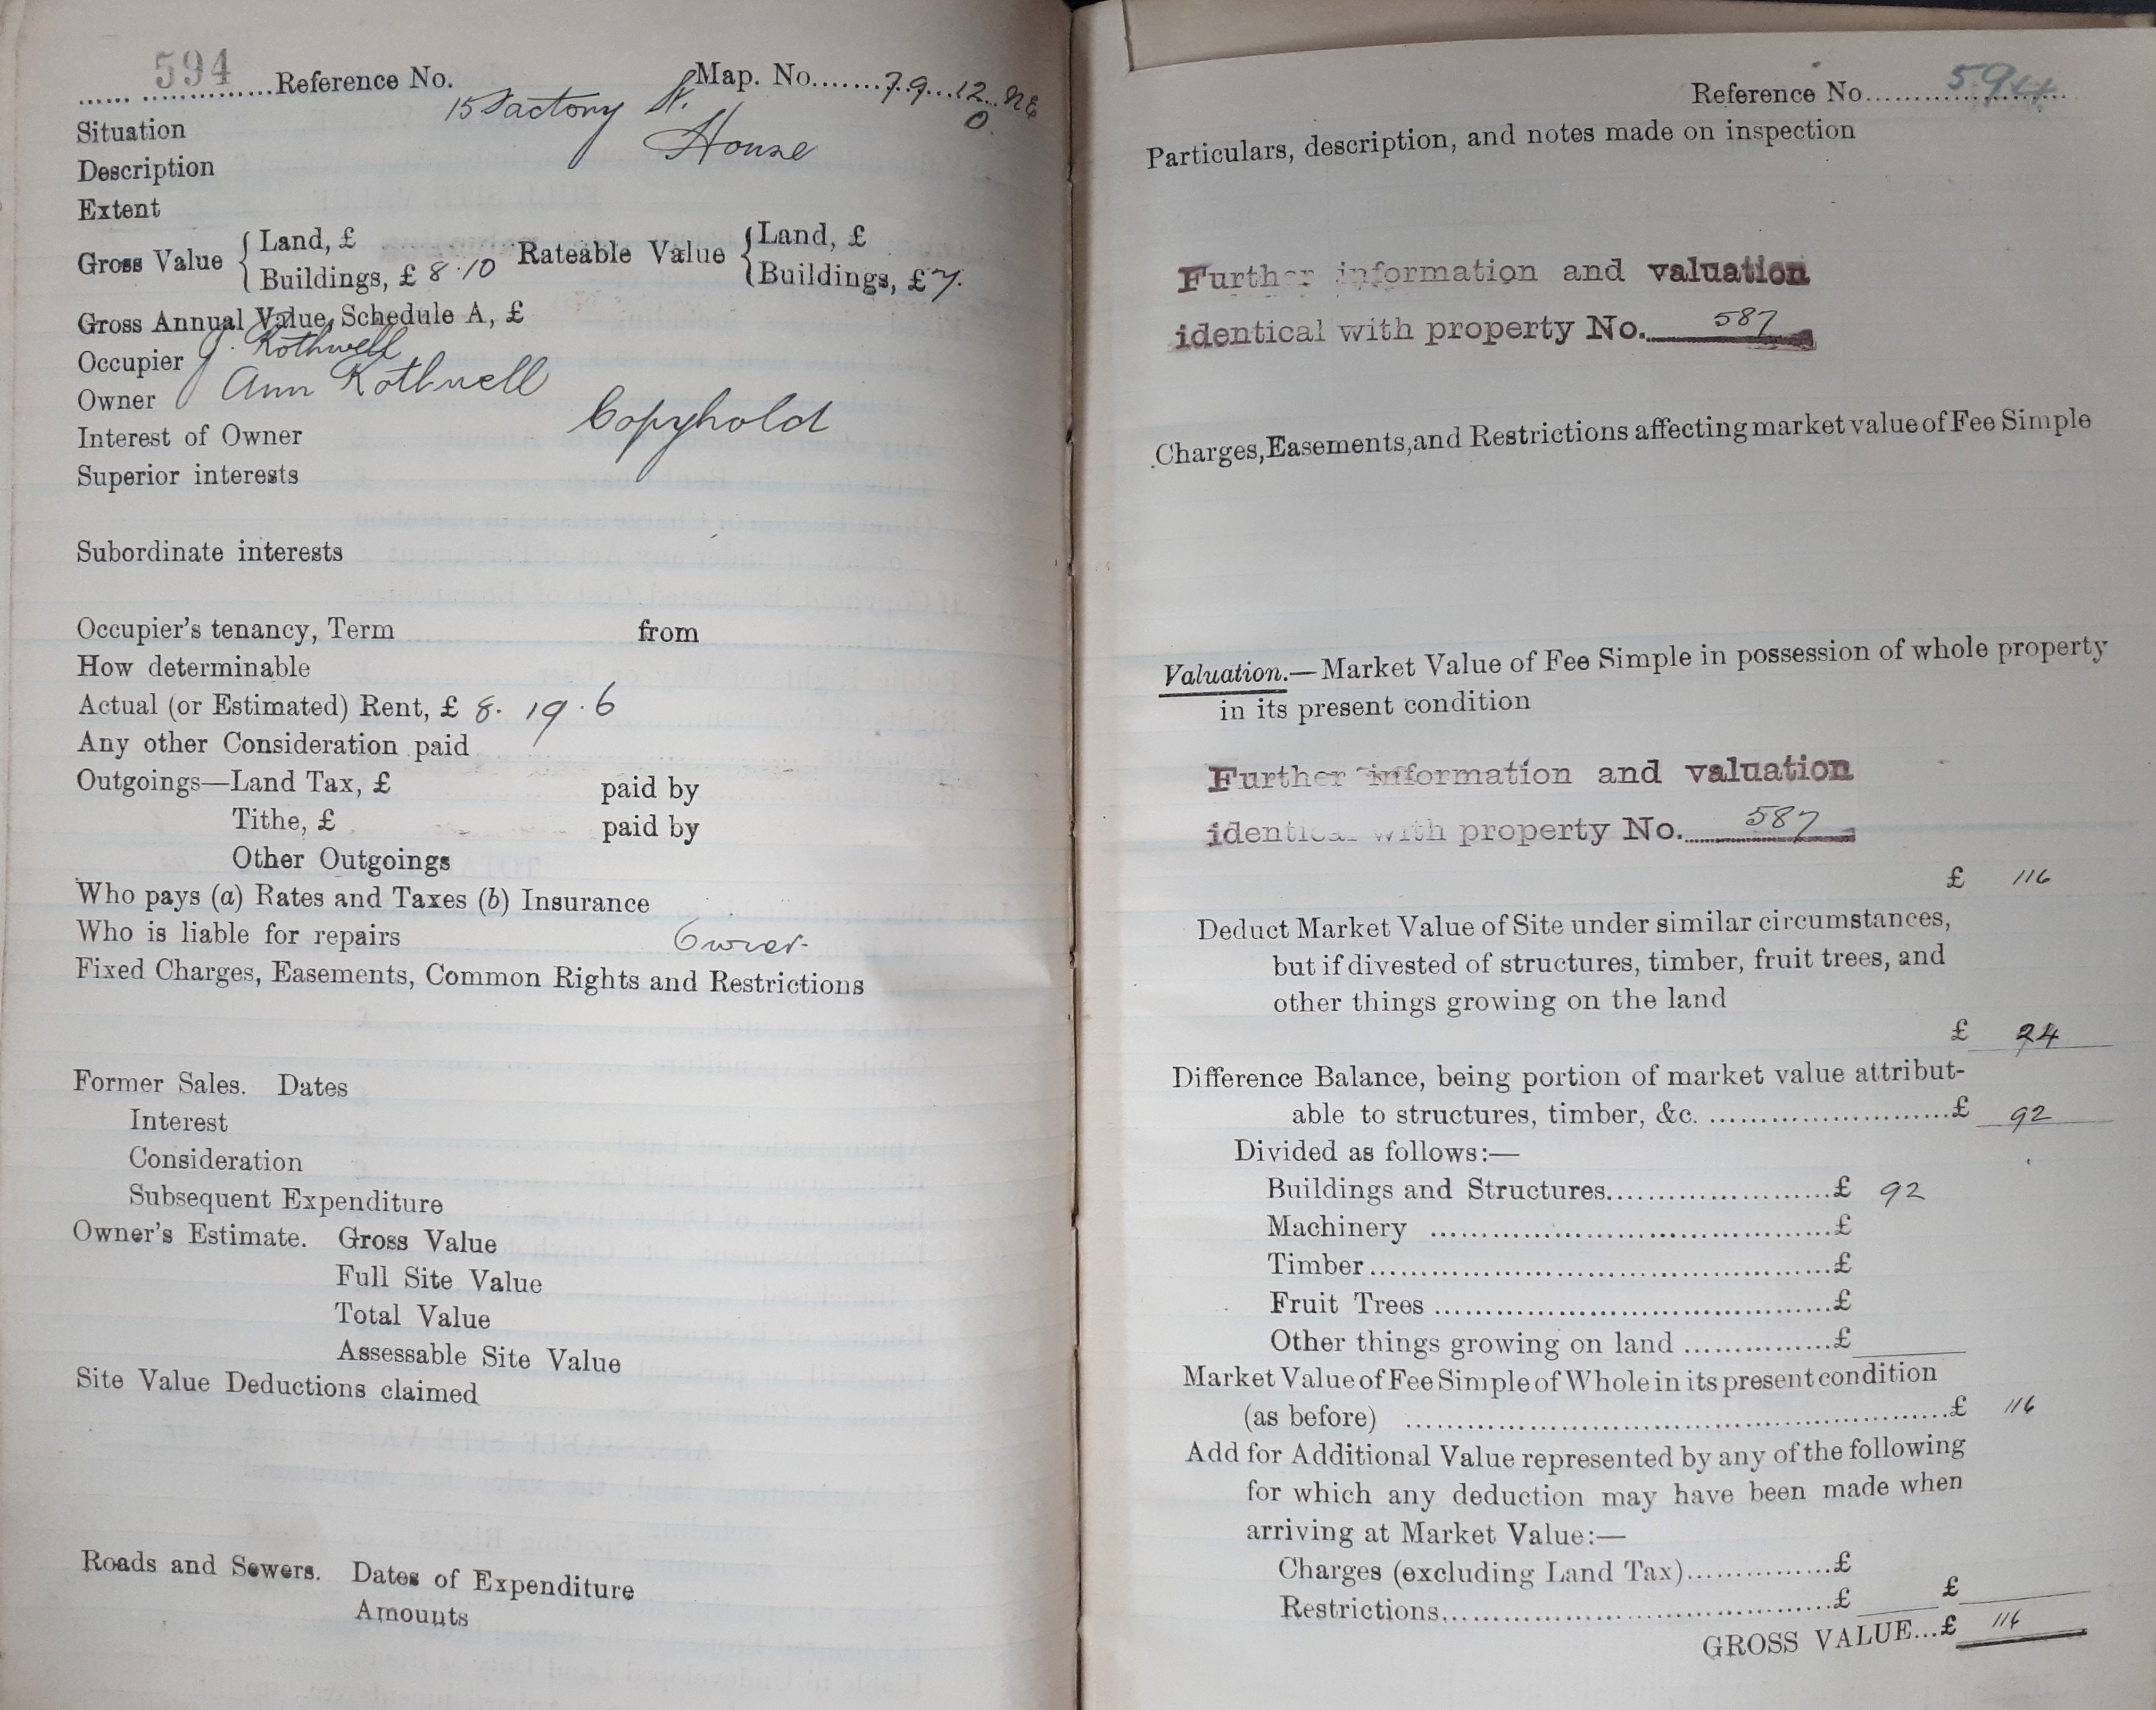 594 Reference No. Map. No. 79.12.NE
0.
15 Factory St.
Situation
House
Description
Extent
Gross Value { Land, £ Rateable Value { Land, £
Buildings, £ 8.10 Buildings, £ 7.
Gross Annual Value, Schedule A, £
Occupier J. Rothwell
Owner Ann Rothwell
Interest of Owner Copyhold
Superior interests
Subordinate interests
Occupier's tenancy, Term from
How determinable
Actual (or Estimated) Rent, £ 8. 19. 6
Any other Consideration paid
Outgoings—Land Tax, £ paid by
Tithe, £ paid by
Other Outgoings
Who pays (a) Rates and Taxes (b) Insurance
Who is liable for repairs Owner.
Fixed Charges, Easements, Common Rights and Restrictions
Former Sales. Dates
Interest
Consideration
Subsequent Expenditure
Owner's Estimate. Gross Value
Full Site Value
Total Value
Assessable Site Value
Site Value Deductions claimed
Roads and Sewers. Dates of Expenditure
Amounts
Reference No. 594
Particulars, description, and notes made on inspection
Further information and valuation
identical with property No. 587
Charges, Easements, and Restrictions affecting market value of Fee Simple
Valuation.—Market Value of Fee Simple in possession of whole property
in its present condition
Further information and valuation
identical with property No. 587
£ 116
Deduct Market Value of Site under similar circumstances,
but if divested of structures, timber, fruit trees, and
other things growing on the land
£ 24
Difference Balance, being portion of market value attribut-
able to structures, timber, &c. £ 92
Divided as follows:—
Buildings and Structures £ 92
Machinery £
Timber £
Fruit Trees £
Other things growing on land £
Market Value of Fee Simple of Whole in its present condition
(as before) £ 116
Add for Additional Value represented by any of the following
for which any deduction may have been made when
arriving at Market Value:—
Charges (excluding Land Tax) £
Restrictions £ £
GROSS VALUE...£ 116